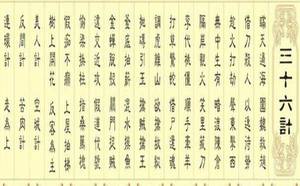 三十六計
瞞天過海 圍魏救趙
借刀殺人 以逸待勞
趁火打劫 聲東擊西
無中生有 暗渡陳倉
隔岸觀火 笑裏藏刀
李代桃僵 順手牽羊
打草驚蛇 借屍還魂
調虎離山 欲擒故縱
拋磚引玉 擒賊擒王
釜底抽薪 混水摸魚
金蟬脫殼 關門捉賊
遠交近攻 假道伐虢
偷樑換柱 指桑罵槐
假痴不癲 上屋抽梯
樹上開花 反客為主
美人計 空城計
反間計 苦肉計
連環計 走為上